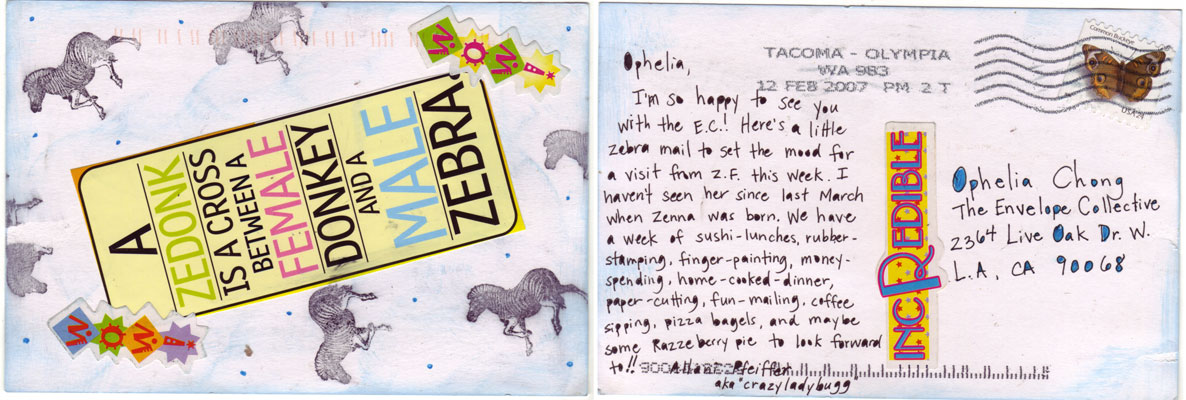 W.O.W.!
A
ZEDONK
IS A CROSS
BETWEEN A
FEMALE
DONKEY
AND A
MALE
ZEBRA
W.O.W.!
Ophelia,
I'm so happy to see you
with the E.C.! Here's a little
zebra mail to set the mood for
a visit from Z.F. this week. I
haven't seen her since last March
when Zenna was born. We have
a week of sushi-lunches, rubber-
stamping, finger-painting, money-
spending, home-cooked-dinner,
paper-cutting, fun-mailing, coffee
sipping, pizza bagels, and maybe
some Razzeberry pie to look forward
to!!
Pfeiffer
aka "crazyladybugg"
TACOMA - OLYMPIA
WA 983
12 FEB 2007 PM 2 T
Common Buckeye
USA 24
INCREDIBLE
Ophelia Chong
The Envelope Collective
2364 Live Oak Dr. W.
L.A., CA 90068